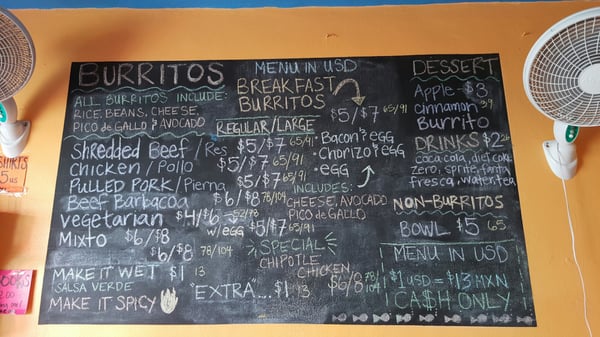 BURRITOS
ALL BURRITOS INCLUDE:
RICE, BEANS, CHEESE,
PICO de GALLO & AVOCADO
REGULAR/LARGE
Shredded Beef / Res $5/$7 65/91
Chicken / Pollo $5/$7 65/91
PULLED PORK / Pierna $5/$7 65/91
Beef Barbacoa $6/$8 78/104
vegetarian $4/$6 52/78
w/EGG $5/$7 65/91
Mixto $6/$8
$6/$8 78/104
MAKE IT WET $1 13
SALSA VERDE
MAKE IT SPICY
MENU IN USD
BREAKFAST
BURRITOS
$5/$7 65/91
Bacon & egg
Chorizo & egg
egg
INCLUDES:
CHEESE, AVOCADO
PICO de GALLO
SPECIAL
CHIPOTLE
CHICKEN
$6/8 78/104
"EXTRA"....$1 13
DESSERT
Apple $3
cinnamon 39
Burrito
DRINKS $2 26
coca cola, diet coke
zero, sprite, fanta
fresca, water, tea
NON-BURRITOS
BOWL $5 65
MENU IN USD
$1 USD = $13 MXN
CA$H ONLY